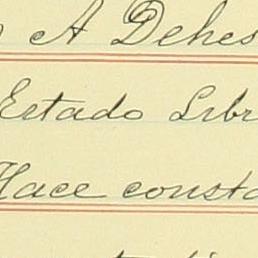 A Dehes
Estado Libr
Hace consta